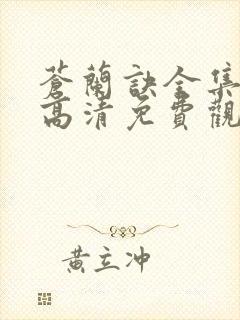 蒼蘭訣全集
高清免費觀
黃立冲